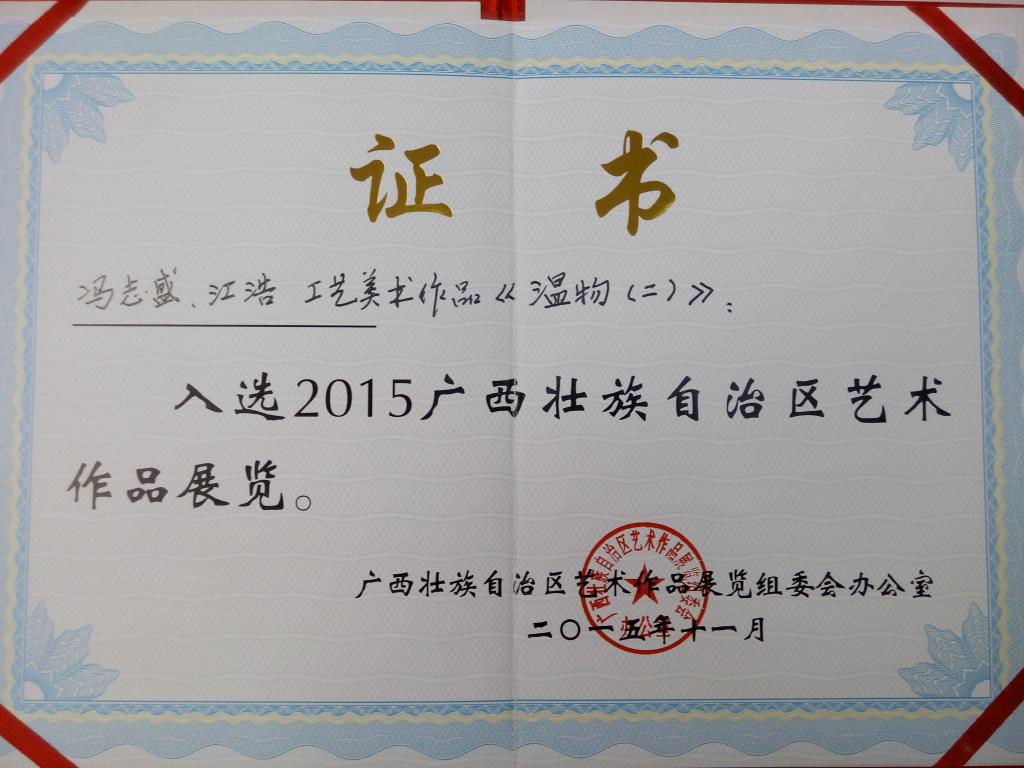 证 书
冯志盛、江浩 工艺美术作品《温物(二)》:
入选2015广西壮族自治区艺术
作品展览。
广西壮族自治区艺术作品展览组委会办公室
二〇一五年十一月
广西壮族自治区艺术作品展览组委会
办公室